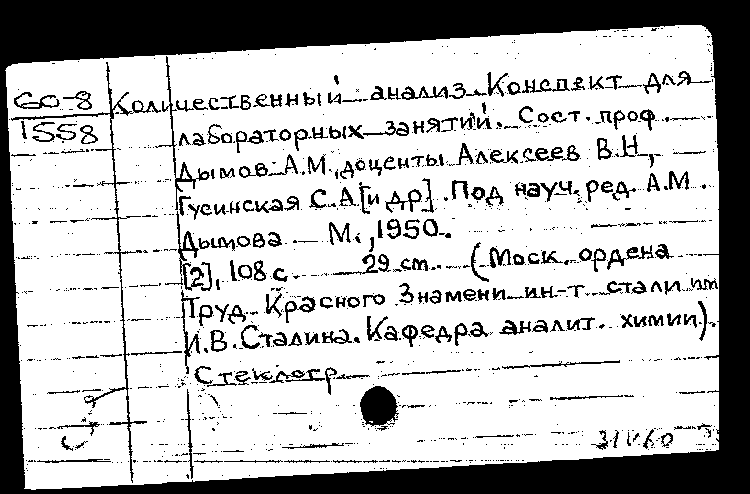 60-8 Количественный анализ. Конспект для
1558 лабораторных занятий. Сост. проф.
Дымов А.М., доценты Алексеев В.Н.,
Гусинская С.А. [и др]. Под науч. ред. А.М.
Дымова М., 1950.
[2], 108 с. 29 cm. (Моск. ордена
Труд. Красного Знамени ин-т стали им
И.В. Сталина. Кафедра аналит. химии).
Стеклогр.
31 V 60